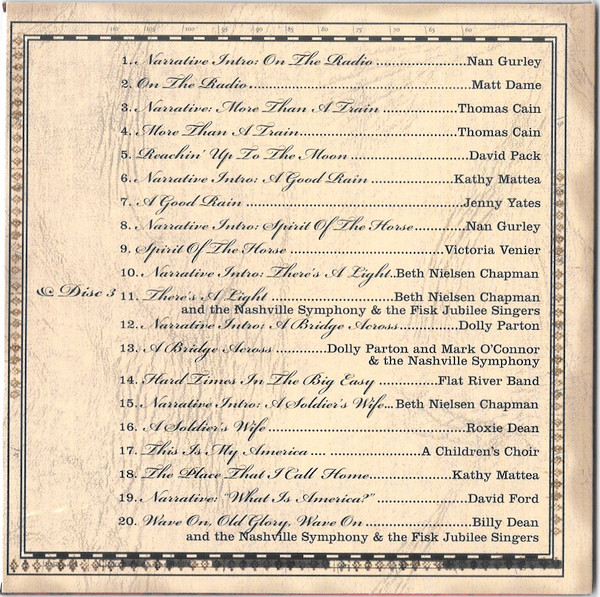 1. Narrative Intro: On The Radio .......................Nan Gurley
2. On The Radio.........................................................Matt Dame
3. Narrative: More Than A Train ...................Thomas Cain
4. More Than A Train........................................Thomas Cain
5. Reachin' Up To The Moon ...............................David Pack
6. Narrative Intro: A Good Rain .....................Kathy Mattea
7. A Good Rain .......................................................Jenny Yates
8. Narrative Intro: Spirit Of The Horse.............Nan Gurley
9. Spirit Of The Horse .......................................Victoria Venier
10. Narrative Intro: There's A Light..Beth Nielsen Chapman
Disc 3
11. There's A Light ...............................Beth Nielsen Chapman
and the Nashville Symphony & the Fisk Jubilee Singers
12. Narrative Intro: A Bridge Across...............Dolly Parton
13. A Bridge Across .............Dolly Parton and Mark O'Connor
& the Nashville Symphony
14. Hard Times In The Big Easy ...............Flat River Band
15. Narrative Intro: A Soldier's Wife...Beth Nielsen Chapman
16. A Soldier's Wife..................................................Roxie Dean
17. This Is My America .... .......................A Children's Choir
18. The Place That I Call Home.....................Kathy Mattea
19. Narrative: "What Is America?" .......................David Ford
20. Wave On, Old Glory, Wave On ...........................Billy Dean
and the Nashville Symphony & the Fisk Jubilee Singers